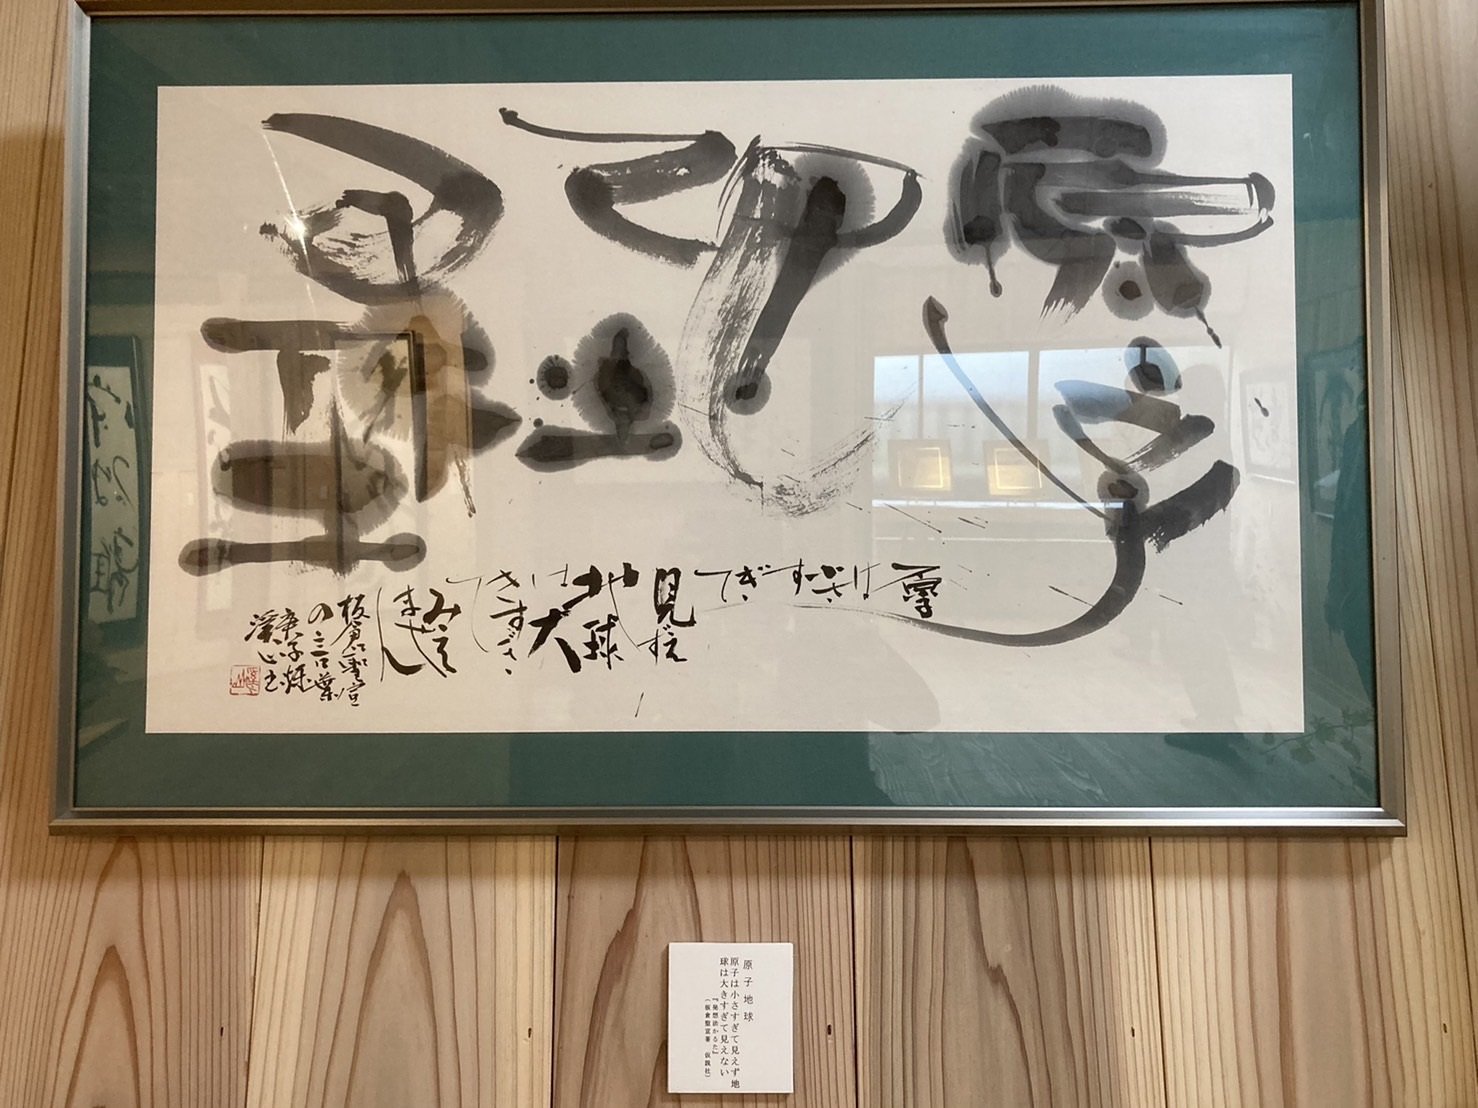 原子
地球
原子
は小さ
すぎ
て
見えず
地球
は大
きすぎ
て
みえ
ません
板倉聖宣
の言葉
原子地球
原子は小さすぎて見えず地
球は大きすぎて見えない
『発想法かるた』
（板倉聖宣著　仮説社）